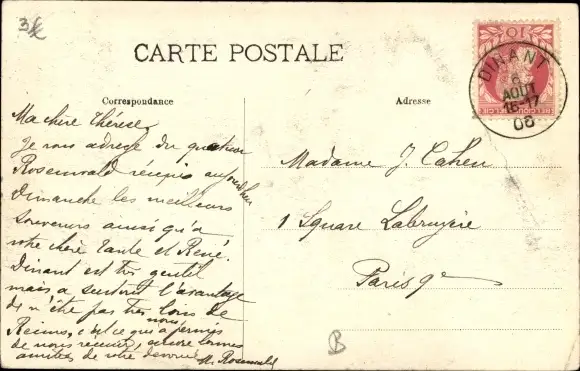 3€
CARTE POSTALE
Correspondance
Adresse
Ma chère Thérèse,
Je vous adresse du
Rosenwald réunis aujourd'hui
Dimanche les meilleurs
souvenirs ainsi qu'à
votre chère tante et René.
Dinant est très gentil
mais a surtout l'avantage
de n'être pas très loin de
Reims, c'est ce qui a permis
nous
de nous réunir, encore bonnes
amitiés de votre dévouée
M. Rosenwald
Madame J. Cahen
1 Square Labruyère
Paris 9e
10
DINANT
6
AOUT
16-17
06
B